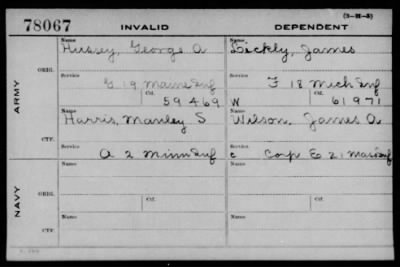 (3-M-5)
78067 INVALID DEPENDENT
Name Name
Hussey, George A Lickly, James
ORIG. Service Service
G 19 Maine Inf F 18 Mich Inf
Ctf. Ctf.
59469 W 61971
ARMY
Name Name
Harris, Manley S Wilson, James A
CTF. Service Service
A 2 Minn Inf C Corp E 21 Mass Inf
Name Name
ORIG. Service Ctf. Service Ctf.
NAVY
Name Name
CTF. Service Service